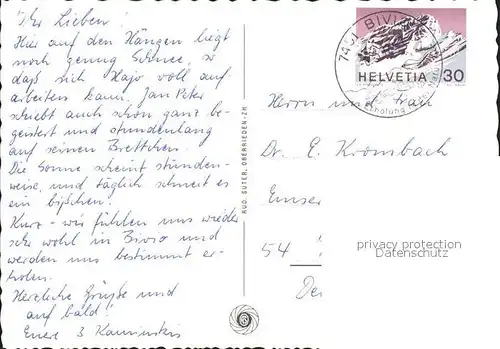 Ihr Lieben.
Hier auf den Hängen liegt
noch genug Schnee, so
daß sich Kajo voll auf
arbeiten kann, Jan Peter
schiebt auch schon ganz be-
geistert und stundenlang
auf seinen Brettchen.
Die Sonne scheint stunden-
weise, und täglich schneit es
ein bißchen.
Kurz - wir fühlen uns wieder
sehr wohl in Bivio und
werden uns bestimmt er-
holen.
Herzliche Grüße und
auf bald!
Eure 3 Kaminskis
RUD. SUTER, OBERRIEDEN-ZH
BIVI
HELVETIA 30
Erholung
Herrn und Frau
Dr. E. Krombach
Emser
54
privacy protection
Datenschutz